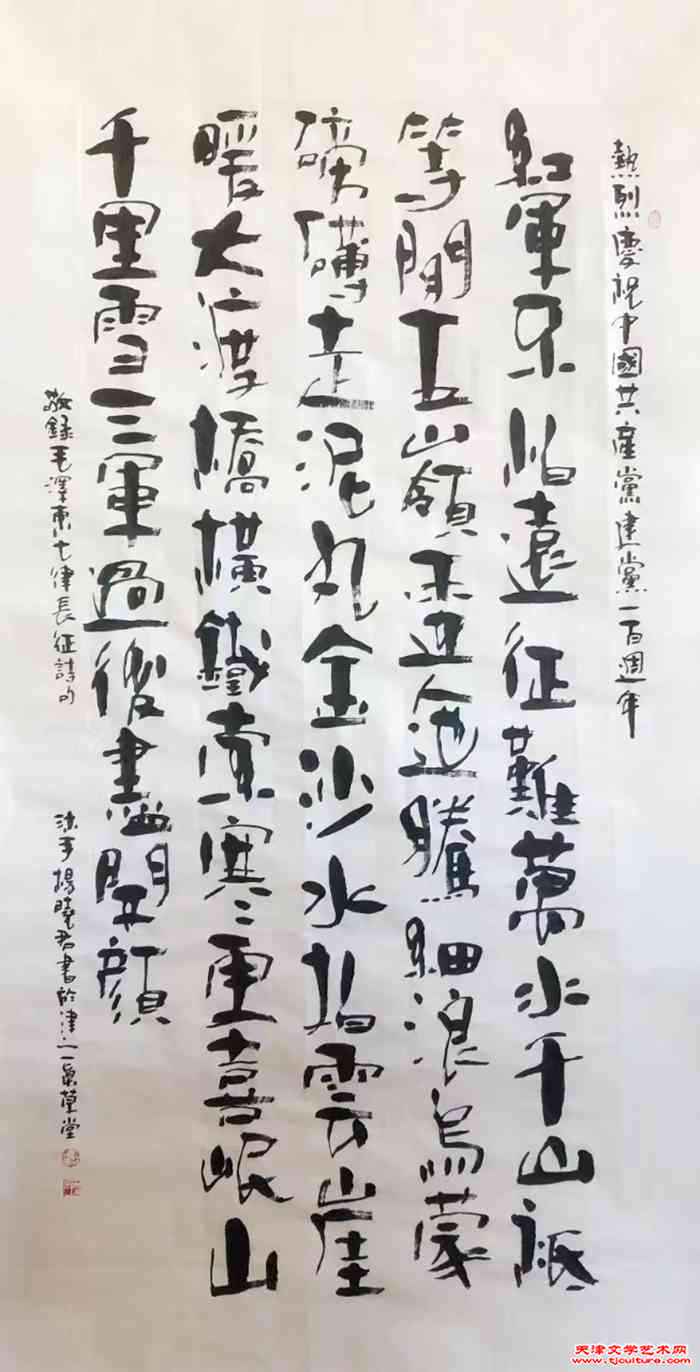 熱烈慶祝中國共產黨建黨一百週年
紅軍不怕遠征難萬水千山祇
等閒五嶺逶迤騰細浪烏蒙
磅礴走泥丸金沙水拍雲崖
暖大渡橋橫鐵索寒更喜岷山
千里雪三軍過後盡開顏
敬錄毛澤東七律長征詩句
楊曉君書於津之一草堂
天津文学艺术网
www.tjculture.com